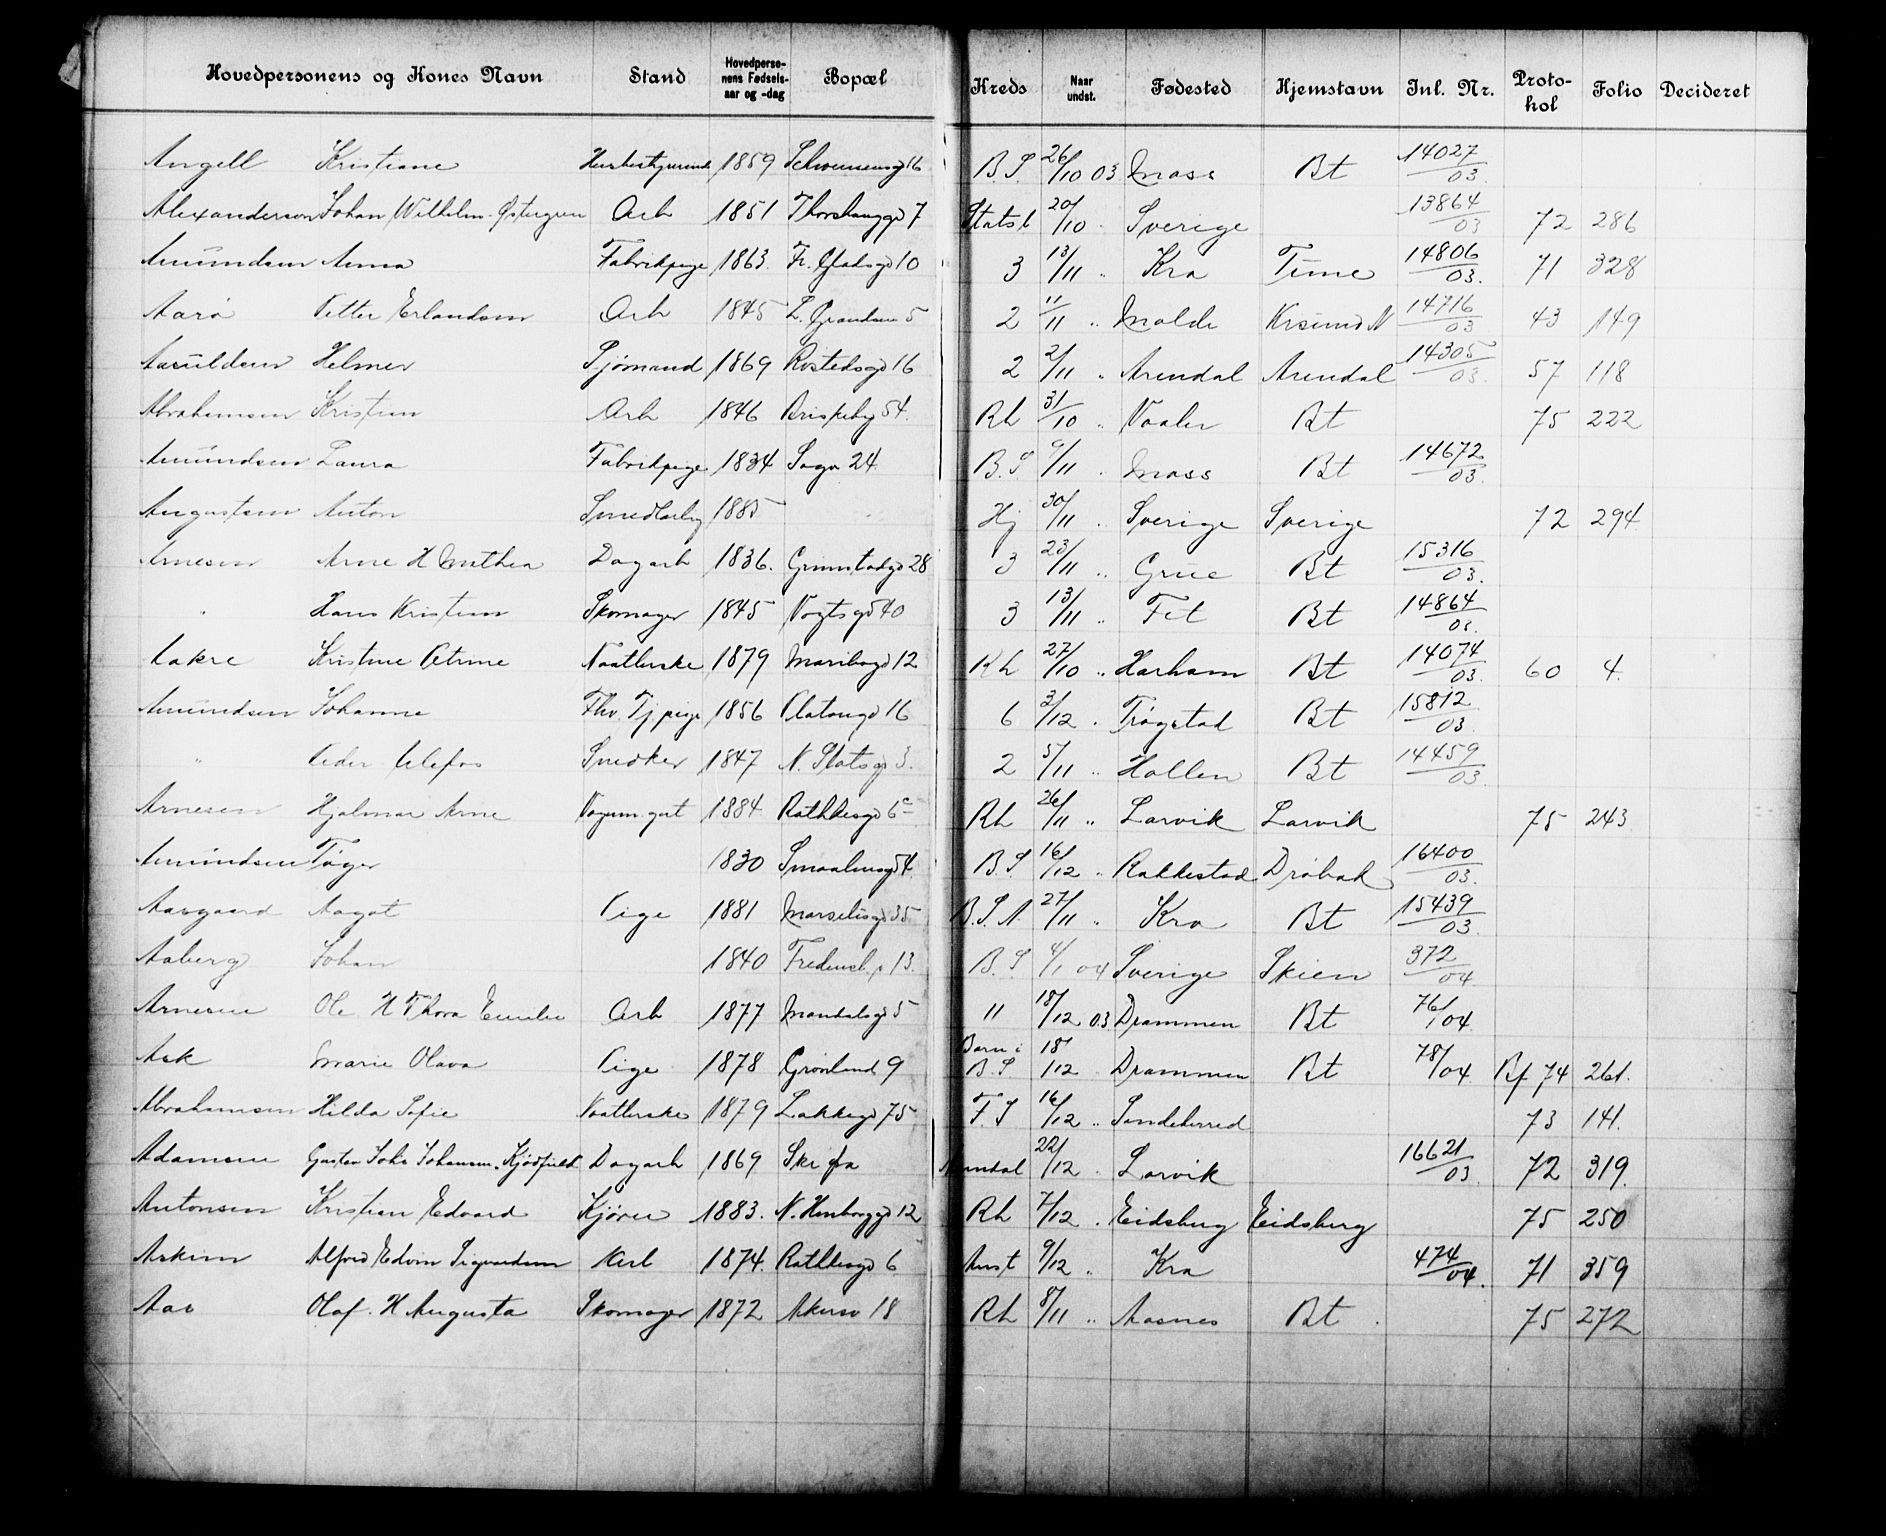 Hovedpersonens og Kones Navn Stand Hovedperso-nens Fødsels-aar og -dag Bopæl Kreds Naar undst. Fødested Hjemstavn Inl. Nr. Proto-kol Folio Decideret
Angell Kristiane 1859 16 B.S. 26/10 03 Moss Bt 14027/03.
Alexanderson Johan Wilhelm Østergren Arb 1851 Thorshauggd 7 Statsb 20/10 Sverige 13864/03 72 286
Amundsen Anna Fabrikpige 1863. Fr. Stadsgd 10 3 13/11 " Kra Time 14806/03. 71 328
Aarø Petter Erlandsen Arb 1845 L. Grændsen 5 2 11/11 " Molde Krsund N 14716/03 43 149
Aasuldsen Helmer Sjømand 1869 Rostedsgd 16 2 2/11 " Arendal Arendal 14305/03. 57 118
Abrahamsen Kristian Arb 1846 Brispeby 54. Rh 31/10 " Vaaler Bt 75 222
Amundsen Laura Fabrikpige 1834 Sagv 24 B.S /11 Moss Bt 14672/03.
Augustsen Anton Smedlærlg 1885 Hj 30/11 " Sverige Sverige 72 294
Arnesen Arne H Mathea Dagarb 1836. Grimstadgd 28 3 23/11 " Grue Bt 15316/03.
" Hans Kristian Skomager 1845 Vogtsgd 40 3 13/11 " Fet Bt 14864/03.
Aakre Kristine Petrine Vaatterske 1879 Maribogd 12 Rh 27/10 " Harham Bt 14074/03. 60 4.
Amundsen Johanne Fhv. Tj pige 1856 Platousgd 16 6 3/12 . Trøgstad Bt 15812/03
" Peder Ulefos Snedker 1847 N. Slotsgd 3. 2 5/11 " Hollen Bt 14459/03.
Arnesen Hjalmar Arne Vognm. gut 1884 Rathkesgd 6c Rh 26/11 " Larvik Larvik 75 243
Amundsen Tøger 1830 Smaalensgd 4 B.S 16/12 " Rakkestad Drøbak 16400/03.
Aasgaard Aagot Pige 1881 Marselisgd 35 B.S.A. 27/11 " Kra Bt 15439/03
Aaberg Johan 1840 13. B.S 4/1 04 Sverige Skien 372/04
Arnesen Ole H Thora Emilie Arb 1877 Mandalsgd 5 11 18/12 03. Drammen Bt 76/04.
Ask Marie Olava Pige 1878 Grønland 9 Barn i B.S 18/12 Drammen Bt 78/04 Bf 74 261.
Abrahamsen Hilda Sofie Vaatterske 1879 Lakkegd 75 F.S 16/12 " Sandeherred 73 141.
Adamsen Gustav Johs Johansen Kjødfield Dagarb 1869 Ski fra Arendal 22/12 . Larvik 16621/03. 72 319.
Antonsen Kristian Edvard Kjører 1883. 12 Rh 7/12 . Eidsberg Eidsberg 75 250
Askim Alfred Edvin Sigvardsen Arb 1874. Rathkesgd 6 Anst 9/12 " Kra 474/04. 71 359
Aas Olaf H Augusta Skomager 1872 Akersv 18 Rh 8/11 " Aasnes Bt 75 272